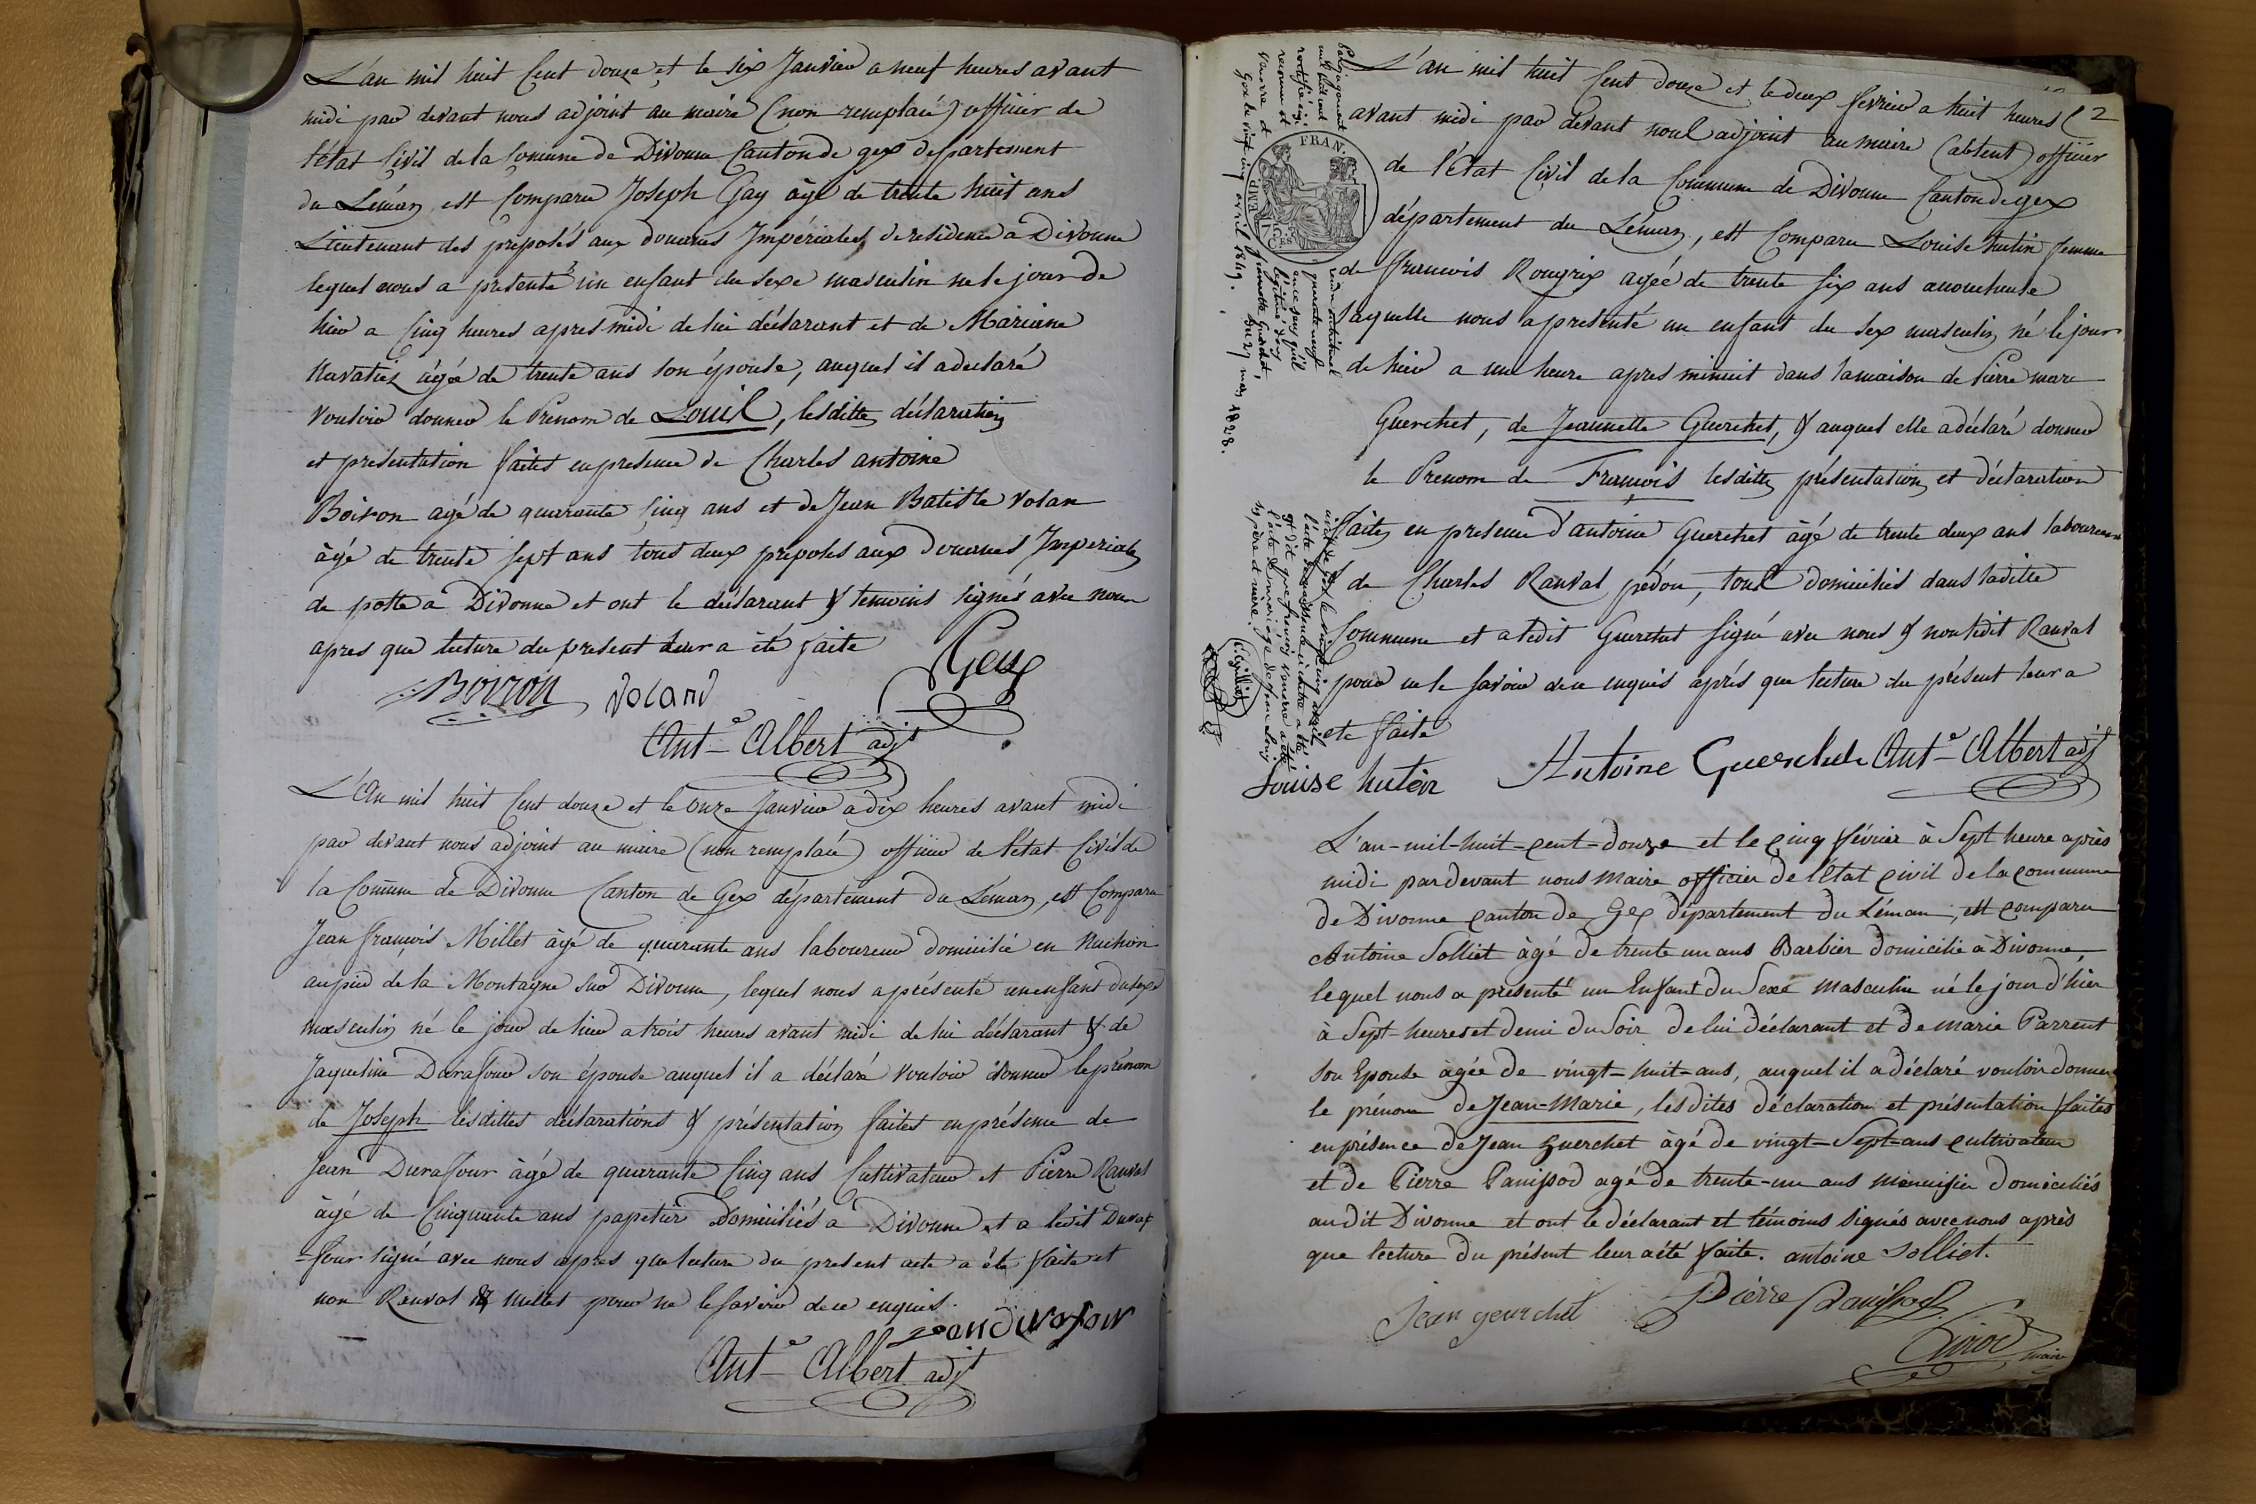 L'an mil huit Cent douze et le six Janvier a neuf heures avant
midi par devant nous adjoint au maire (non remplacé) officier de
l'état Civil de la Comune de Divonne Canton de gex département
du Léman, est Comparu Joseph Gay âgé de trente huit ans
Lieutenant des préposés aux douanes Impériales, de residence a Divonne
lequel nous a présenté un enfant du sexe masculin né le jour de
hier a Cinq heures apres midi de lui déclarant et de Mariane
âgée de trente ans son épouse, auquel il a déclaré
vouloir donner le Prénom de Louis, lesdittes déclaration
et présentation faites en presence de Charles antoine
Boiron agé de quarante Cinq ans et de Jean Batiste Volan
âgé de trente sept ans tous deux préposés aux Douanes Imperiales
de poste a Divonne et ont le déclarant & temoins signés avec nous
apres que lecture du present leur a été faite
Boiron Voland Gay
Ant.e Albert adjt
L'An mil huit Cent douze et le onze Janvier a dix heures avant midi
par devant nous adjoint au maire (non remplacé) officier de l'état Civil de
la Comune de Divonne Canton de Gex département du Léman, est Comparu
Jean françois Millet âgé de quarante ans laboureur domicilié en
au pied de la Montagne sur Divonne, lequel nous a présenté un enfant du sexe
masculin né le jour de hier a trois heures avant midi de lui déclarant & de
Jaqueline Durafour son épouse auquel il a déclaré vouloir donner le prénom
de Joseph lesdittes déclarations & présentation faites en présence de
Jean Durafour âgé de quarante Cinq ans Cultivateur et Pierre Ranval
âgé de Cinquante ans papetier Domiciliés a Divonne et a ledit Dura
-four signé avec nous apres que lecture du present acte a été faite et
non Ranval & Millet pour ne le savoir de ce enquis.
Jean durafour
Ant.e Albert adjt
2
L'an mil huit Cent douze et le deux fevrier a huit heures
avant midi par devant nous adjoint au maire (absent) officier
de l'état Civil de la Commune de Divonne Canton de gex
département du Léman, est Comparu Louise hutin femme
de francois Rougrix agée de trente six ans acoucheuse
laquelle nous a presenté un enfant du sex masculin, né le jour
de hier a une heure apres minuit dans la maison de Pierre marc
Guerchet, de Jeannette Guerchet, & auquel elle a déclaré donner
le Prenom de François lesdittes présentation et déclaration
faites en presence d'antoine Guerchet âgé de trente deux ans laboureur
& de Charles Ranval pédon, tous domiciliés dans laditte
Commune et a ledit Guerchet signé avec nous & non ledit Ranval
pour ne le savoir de ce enquis après que lecture du présent leur a
été faite
Louise hutin Antoine Guerchet Ant.e Albert adjt
Par jugement
rectifié
reconnu et
Gex le vingt cinq avril 1849.
FRAN.
EMP
Jeannette Guerchet
du 27 mars 1828.
l'acte de naissance ci contre a été
et dit que françois
l'acte de mariage de
ses père et mère.
L'an-mil-huit-cent-douze et le cinq février à Sept heure après
midi pardevant nous Maire officier de l'État civil de la commune
de Divonne canton de Gex département du Léman, est comparu
Antoine Solliet âgé de trente un ans Barbier domicilié à Divonne,
lequel nous a présenté un Enfant du Sexe masculin né le jour d'hier
à Sept heures et demi du Soir de lui déclarant et de marie Parrent
son Epouse agée de vingt-huit-ans, auquel il a déclaré vouloir donner
le prénom de Jean-Marie, lesdites déclaration et présentation faites
en présence de Jean Guerchet âgé de vingt-Sept-ans cultivateur
et de Pierre Panissod agé de trente-un ans menuisier domiciliés
audit Divonne et ont le déclarant et témoins signés avec nous après
que lecture du présent leur a été faite. antoine solliet.
Jean guerchet Pierre Panissod
Girod maire